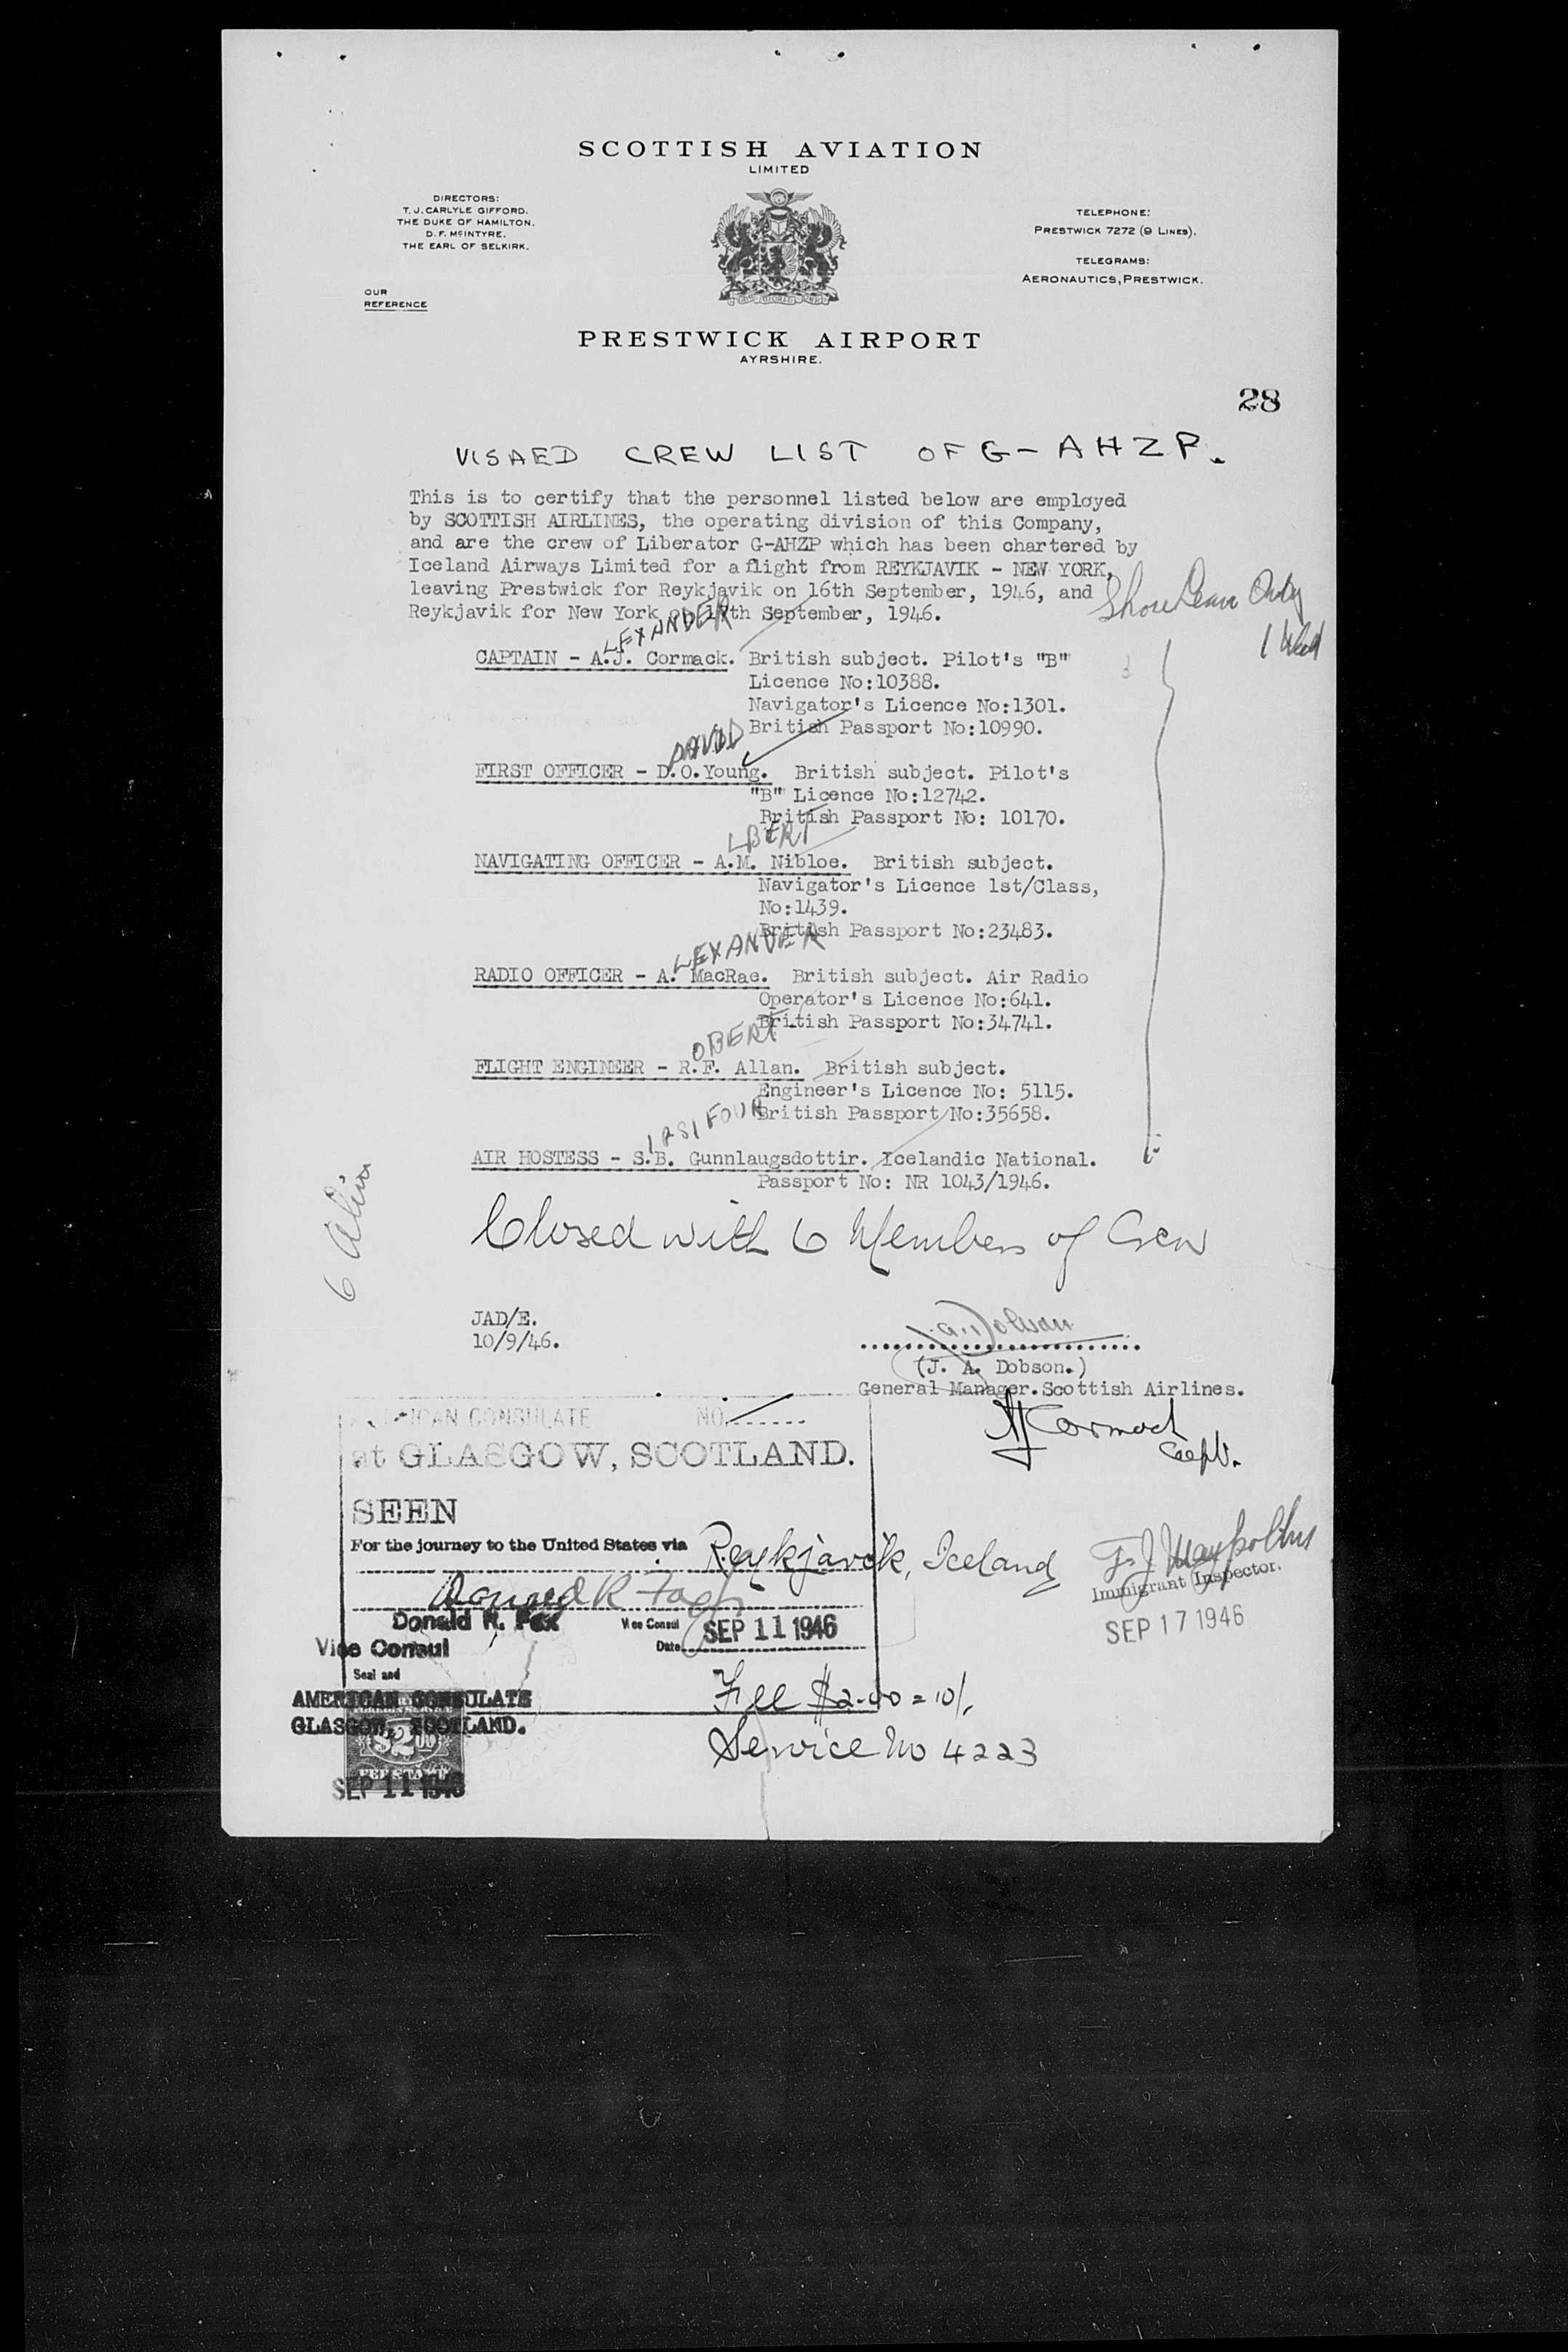 SCOTTISH AVIATION
LIMITED
DIRECTORS:
T. J. CARLYLE GIFFORD.
THE DUKE OF HAMILTON.
D. F. McINTYRE.
THE EARL OF SELKIRK.
TELEPHONE:
PRESTWICK 7272 (9 LINES).
TELEGRAMS:
AERONAUTICS, PRESTWICK.
OUR
REFERENCE
PRESTWICK AIRPORT
AYRSHIRE.
28
VISAED CREW LIST OF G-AHZP.
This is to certify that the personnel listed below are employed
by SCOTTISH AIRLINES, the operating division of this Company,
and are the crew of Liberator G-AHZP which has been chartered by
Iceland Airways Limited for a flight from REYKJAVIK - NEW YORK,
leaving Prestwick for Reykjavik on 16th September, 1946, and
Reykjavik for New York on 17th September, 1946.
LEXANDER
CAPTAIN - A.J. Cormack. British subject. Pilot's "B"
Licence No:10388.
Navigator's Licence No:1301.
British Passport No:10990.
DAVID
FIRST OFFICER - D.O.Young. British subject. Pilot's
"B" Licence No:12742.
British Passport No: 10170.
LBERT
NAVIGATING OFFICER - A.M. Nibloe. British subject.
Navigator's Licence 1st/Class,
No:1439.
British Passport No:23483.
LEXANDER
RADIO OFFICER - A. MacRae. British subject. Air Radio
Operator's Licence No:641.
British Passport No:34741.
OBERT
FLIGHT ENGINEER - R.F. Allan. British subject.
Engineer's Licence No: 5115.
British Passport No:35658.
AIR HOSTESS - S.B. Gunnlaugsdottir. Icelandic National.
Passport No: NR 1043/1946.
Closed with 6 Members of Crew
JAD/E.
10/9/46.
J.A. Dobson
(J. A. Dobson.)
General Manager. Scottish Airlines.
AJCormack
Capt.
AMERICAN CONSULATE NO.
at GLASGOW, SCOTLAND.
SEEN
For the journey to the United States via Reykjavik, Iceland
Donald R Fox
Donald R. Fox
Vice Consul
Vice Consul
Date SEP 11 1946
Seal and
AMERICAN CONSULATE
GLASGOW, SCOTLAND.
$2.00
FEE STAMP
SEP 11 1946
Immigrant Inspector.
SEP 17 1946
Fee $2.00 = 10/.
Service No 4223